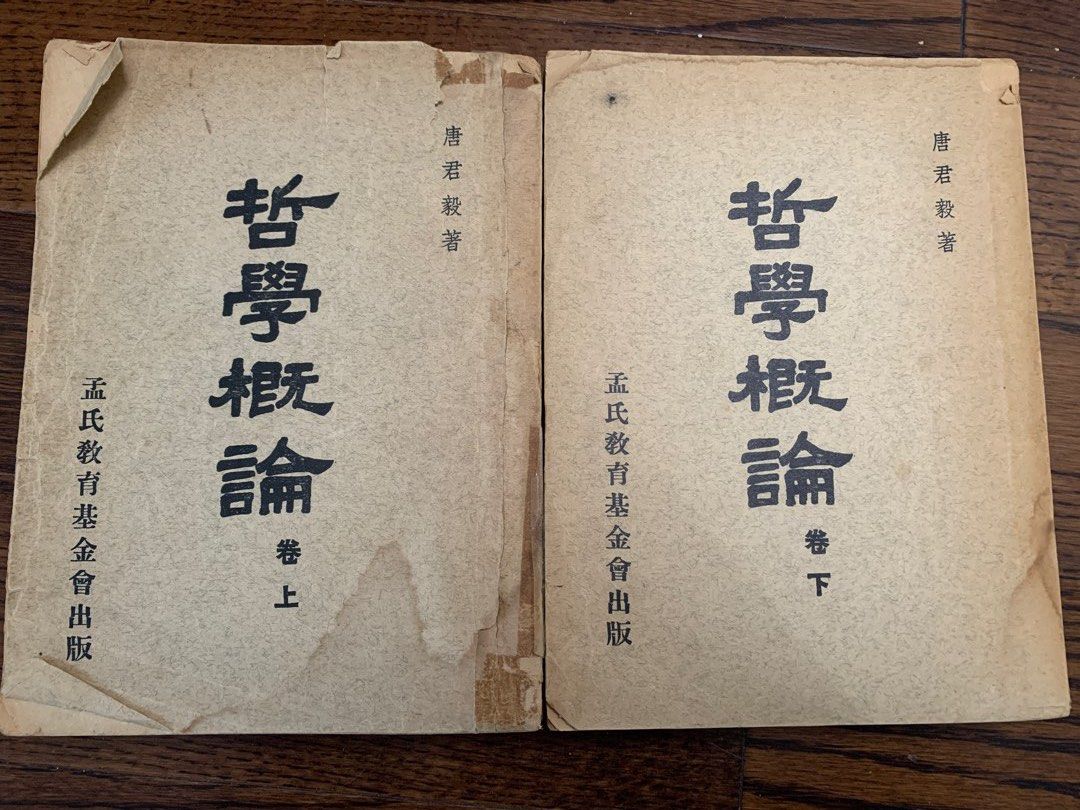 唐君毅著
哲學概論
卷上
孟氏教育基金會出版
唐君毅著
哲學概論
卷下
孟氏教育基金會出版